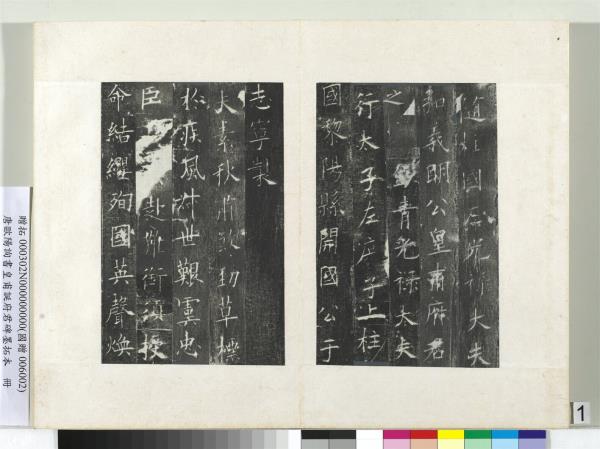 隨柱國左光祿大夫
弘義明公皇甫府君
之 銀青光祿大夫
行太子左庶子上柱
國黎陽縣開國公于
志寧製
夫素秋肅煞勁草標
於疾風叔世艱虞忠
臣 赴難銜須授
命結纓殉國英聲煥
贈拓 000302N000000000(國贈 006002)
唐歐陽詢書皇甫誕府君碑墨拓本 冊
1